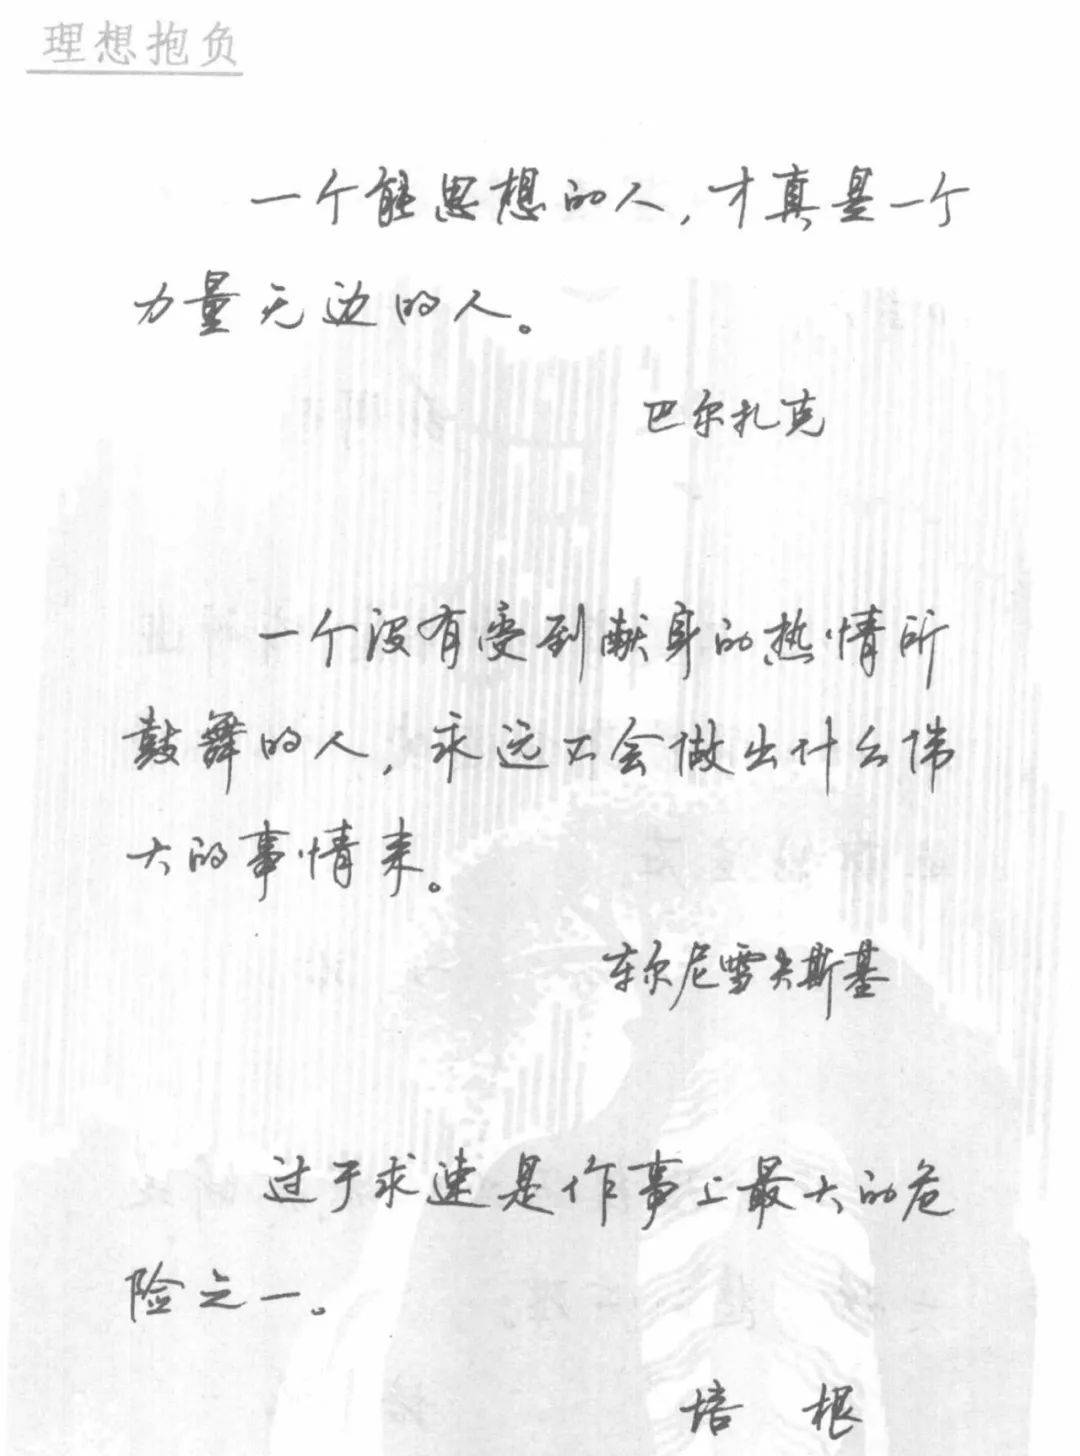 理想抱负
一个能思想的人，才真是一个
力量无边的人。
巴尔扎克
一个没有受到献身的热情所
鼓舞的人，永远不会做出什么伟
大的事情来。
车尔尼雪夫斯基
过于求速是作事上最大的危
险之一。
培根